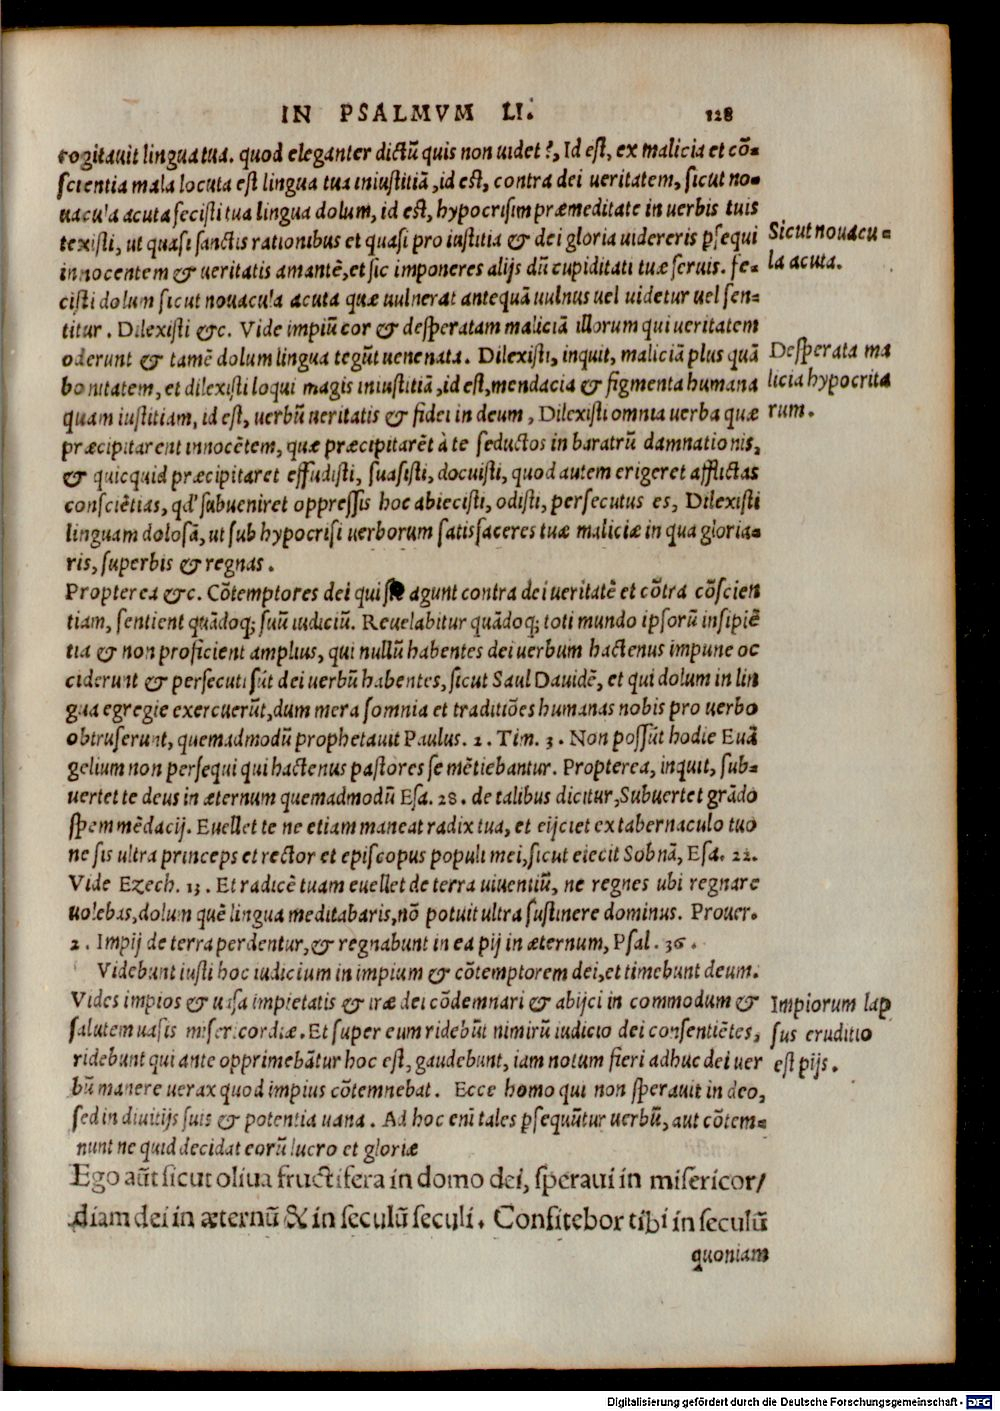 IN PSALMVM LI. 128
cogitauit lingua tua. quod eleganter dictũ quis non uidet?, Id est, ex malicia et cõ-
scientia mala locuta est lingua tua iniustitiã, id est, contra dei ueritatem, sicut no-
uacula acuta fecisti tua lingua dolum, id est, hypocrisim præmeditate in uerbis tuis
texisti, ut quasi sanctis rationibus et quasi pro iustitia & dei gloria uidereris ꝑsequi
innocentem & ueritatis amantẽ, et sic imponeres alijs dũ cupiditati tuæ seruis. fe-
cisti dolum sicut nouacula acuta quæ uulnerat antequã uulnus uel uidetur uel sen-
titur. Dilexisti &c. Vide impiũ cor & desperatam maliciã illorum qui ueritatem
oderunt & tamẽ dolum lingua tegũt uenenata. Dilexisti, inquit, maliciã plus quã
bonitatem, et dilexisti loqui magis iniustitiã, id est, mendacia & figmenta humana
quam iustitiam, id est, uerbũ ueritatis & fidei in deum, Dilexisti omnia uerba quæ
præcipitarent innocẽtem, quæ præcipitarẽt à te seductos in baratrũ damnationis,
& quicquid præcipitaret effudisti, suasisti, docuisti, quod autem erigeret afflictas
consciẽtias, qđ subueniret oppressis hoc abiecisti, odisti, persecutus es, Dilexisti
linguam dolosã, ut sub hypocrisi uerborum satisfaceres tuæ maliciæ in qua gloria-
ris, superbis & regnas.
Sicut nouacu=
la acuta.
Desperata ma
licia hypocrita
rum.
Propterea &c. Cõtemptores dei qui agunt contra dei ueritatẽ et cõtra cõscien
tiam, sentient quãdoq; suũ iudiciũ. Reuelabitur quãdoq; toti mundo ipsorũ insipiẽ
tia & non proficient amplius, qui nullũ habentes dei uerbum hactenus impune oc
ciderunt & persecuti sũt dei uerbũ habentes, sicut Saul Dauidẽ, et qui dolum in lin
gua egregie exercuerũt, dum mera somnia et traditiões humanas nobis pro uerbo
obtruserunt, quemadmodũ prophetauit Paulus. 2. Tim. 3. Non possũt hodie Euã
gelium non persequi qui hactenus pastores se mẽtiebantur. Propterea, inquit, sub-
uertet te deus in æternum quemadmodũ Esa. 28. de talibus dicitur, Subuertet grãdo
spem mẽdacij. Euellet te ne etiam maneat radix tua, et eijciet ex tabernaculo tuo
ne sis ultra princeps et rector et episcopus populi mei, sicut eiecit Sobnã, Esa. 22.
Vide Ezech. 13. Et radicẽ tuam euellet de terra uiuentiũ, ne regnes ubi regnare
uolebas, dolum quẽ lingua meditabaris, nõ potuit ultra sustinere dominus. Prouer.
2. Impij de terra perdentur, & regnabunt in ea pij in æternum, Psal. 36.
Videbunt iusti hoc iudicium in impium & cõtemptorem dei, et timebunt deum.
Vides impios & uasa impietatis & iræ dei cõdemnari & abijci in commodum &
salutem uasis misericordiæ. Et super eum ridebũt nimirũ iudicio dei consentiẽtes,
ridebunt qui ante opprimebãtur hoc est, gaudebunt, iam notum fieri adhuc dei uer
bũ manere uerax quod impius cõtemnebat. Ecce homo qui non sperauit in deo,
sed in diuitijs suis & potentia uana. Ad hoc enĩ tales ꝑsequũtur uerbũ, aut cõtem-
nunt ne quid decidat eorũ lucro et gloriæ
Impiorum lap
sus eruditio
est pijs.
Ego aũt sicut oliua fructifera in domo dei, speraui in misericor/
diam dei in æternũ & in seculũ seculi. Confitebor tibi in seculũ
quoniam
Digitalisierung gefördert durch die Deutsche Forschungsgemeinschaft - DFG